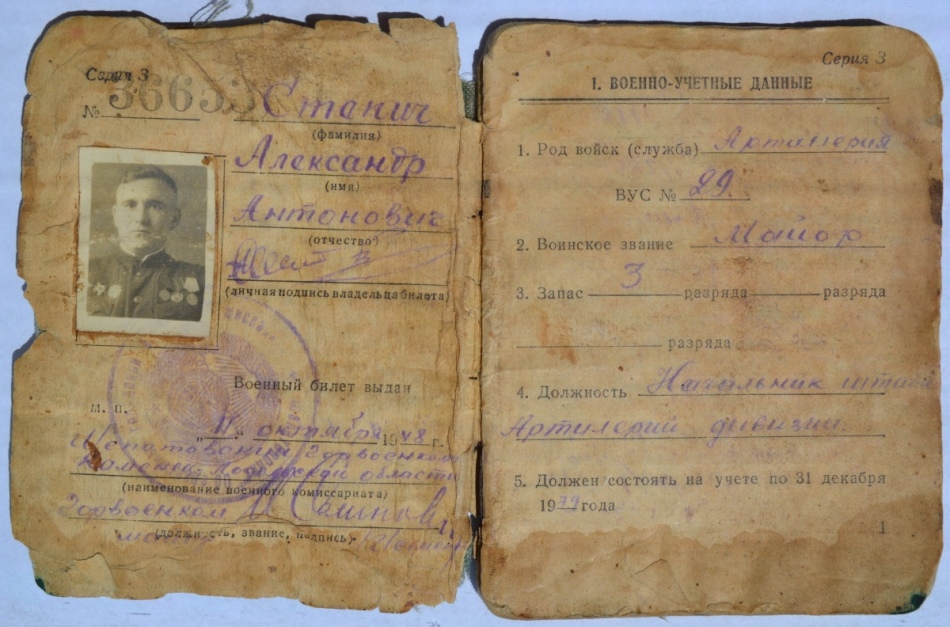 Серия З
№ 3665
Станич
(фамилия)
Александр
(имя)
Антонович
(отчество)
(личная подпись владельца билета)
Военный билет выдан
м. п.
„11“ октября 1948 г.
области
(наименование военного комиссариата)
(должность, звание, подпись)
майор
Серия З
I. ВОЕННО-УЧЕТНЫЕ ДАННЫЕ
1. Род войск (служба) Артилерия
ВУС № 29.
2. Воинское звание Майор
3. Запас 3 разряда разряда
разряда
4. Должность Начальник штаба
Артилерий дивизии.
5. Должен состоять на учете по 31 декабря
1979 года
1